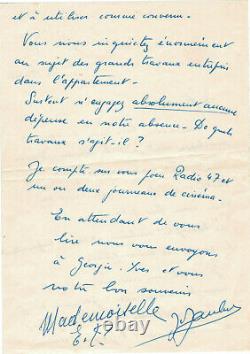 et à utiliser comme convenu.
Vous nous inquiétez énormément
au sujet des grands travaux entrepris
dans l'appartement.
Surtout n'engagez absolument aucune
dépense en notre absence. De quels
travaux s'agit-il ?
Je compte sur vous pour Radio 47 et
un ou deux journaux de cinéma.
En attendant de vous
lire nous vous envoyons
à Georgie, Yves et vous
notre bon souvenir
Mademoiselle
E. T.